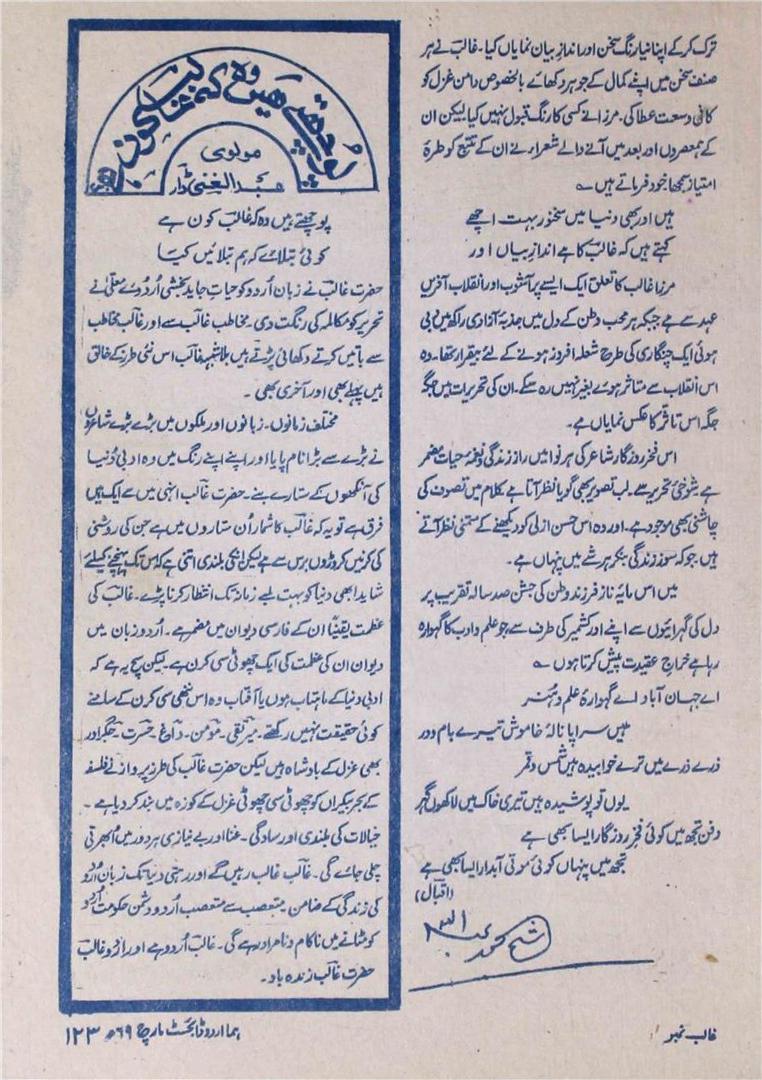 ترک کر کے اپنا نیا رنگ سخن اور انداز بیان نمایاں کیا۔ غالب نے ہر
صنف سخن میں اپنے کمال کے جوہر دکھائے بالخصوص دامن غزل کو
کافی وسعت عطا کی۔ مرزا نے کسی کا رنگ قبول نہیں کیا لیکن ان
کے ہمعصروں اور بعد میں آنے والے شعراء نے ان کے تتبع کو طرۂ
امتیاز سمجھا خود فرماتے ہیں ؎
ہیں اور بھی دنیا میں سخنور بہت اچھے
کہتے ہیں کہ غالب کا ہے انداز بیاں اور
مرزا غالب کا تعلق ایک ایسے پر آشوب اور انقلاب آفریں
عہد سے ہے جبکہ ہر محب وطن کے دل میں جذبۂ آزادی راکھ میں دبی
ہوئی ایک چنگاری کی طرح شعلہ افروز ہونے کے لئے بیقرار تھا۔ وہ
اس انقلاب سے متاثر ہوئے بغیر نہیں رہ سکے۔ ان کی تحریرات میں جگہ
جگہ اس تاثر کا عکس نمایاں ہے۔
اس فخر روزگار شاعر کی ہر نوا میں راز زندگی و نغمۂ حیات مضمر
ہے شوخیٔ تحریر سے۔ لب تصویر بھی گویا نظر آتا ہے کلام میں تصوف کی
چاشنی بھی موجود ہے۔ اور وہ اس حسن ازلی کو دیکھنے کے متمنی نظر آتے
ہیں جو کہ سوز زندگی بنکر ہر شے میں پنہاں ہے۔
میں اس مایۂ ناز فرزند وطن کی جشن صد سالہ تقریب پر
دل کی گہرائیوں سے اپنے اور کشمیر کی طرف سے جو علم و ادب کا گہوارہ
رہا ہے خراج عقیدت پیش کرتا ہوں ؎
اے جہان آباد اے گہوارۂ علم و ہنر
ہیں سراپا نالۂ خاموش تیرے بام و در
ذرے ذرے میں ترے خوابیدہ ہیں شمس و قمر
یوں تو پوشیدہ ہیں تیری خاک میں لاکھوں گہر
دفن تجھ میں کوئی فخر روزگار ایسا بھی ہے
تجھ میں پنہاں کوئی موتی آبدار ایسا بھی ہے
(اقبال)
شیخ محمد عبداللہ
پوچھتے ھیں وہ کہ غالب کون ہے
مولوی
عبدالغنی ڈار
پوچھتے ہیں وہ کہ غالب کون ہے
کوئی بتلائے کہ ہم بتلائیں کیا
حضرت غالب نے زبان اُردو کو حیات جاوید بخشی اُردوئے معلیٰ نے
تحریر کو مکالمہ کی رنگت دی۔ مخاطب غالب سے اور غالب مخاطب
سے باتیں کرتے دکھائی پڑتے ہیں بلا شبہہ غالب اس نئی طرز کے خالق
ہیں پہلے بھی اور آخری بھی۔
مختلف زمانوں۔ زبانوں اور ملکوں میں بڑے بڑے شاعروں
نے بڑے سے بڑا نام پایا اور اپنے اپنے رنگ میں وہ ادبی دُنیا
کی آنکھوں کے ستارے بنے۔ حضرت غالب انہی میں سے ایک ہیں
فرق ہے تو یہ کہ غالب کا شمار اُن ستاروں میں ہے جن کی روشنی
کی کرنیں کروڑوں برس سے ہے لیکن انکی بلندی اتنی ہے کہ اس تک پہنچنے کیلئے
شاید ابھی دنیا کو بہت لمبے زمانہ تک انتظار کرنا پڑے۔ غالب کی
عظمت یقیناً ان کے فارسی دیوان میں مضمر ہے۔ اُردو زبان میں
دیوان ان کی عظمت کی ایک چھوٹی سی کرن ہے۔ لیکن سچ یہ ہے کہ
ادبی دنیا کے ماہتاب ہوں یا آفتاب وہ اس ننھی سی کرن کے سامنے
کوئی حقیقت نہیں رکھتے۔ میر تقی۔ مومن۔ داغ۔ حسرت۔ جگر اور
بھی غزل کے بادشاہ ہیں لیکن حضرت غالب کی طرز پرواز نے فلسفہ
کے بحر بیکراں کو چھوٹی سی چھوٹی غزل کے کوزہ میں بند کر دیا ہے۔
خیالات کی بلندی اور سادگی۔ غنا اور بے نیازی ہر دور میں اُبھرتی
چلی جائے گی۔ غالب غالب رہیں گے اور رہتی دنیا تک زبان اُردو
کی زندگی کے ضامن۔ متعصب سے متعصب اُردو دشمن حکومت اُردو
کو مٹانے میں ناکام و نامراد رہے گی۔ غالب اُردو ہے اور اُردو غالب
حضرت غالب زندہ باد۔
غالب نمبر
ہما اردو ڈائجسٹ مارچ ۶۹ء ۱۲۳